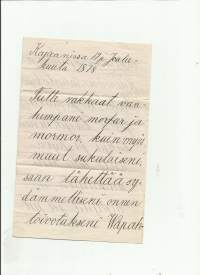 Kajaanissa 17p. Joulu-
kuuta 1878
Tulli rakkaat van-
hempani morfar ja
mormor, kuin myös
muut sukulaiseni,
saan lähettää sy-
dämmellisen onnen
toivotukseni Wapah-